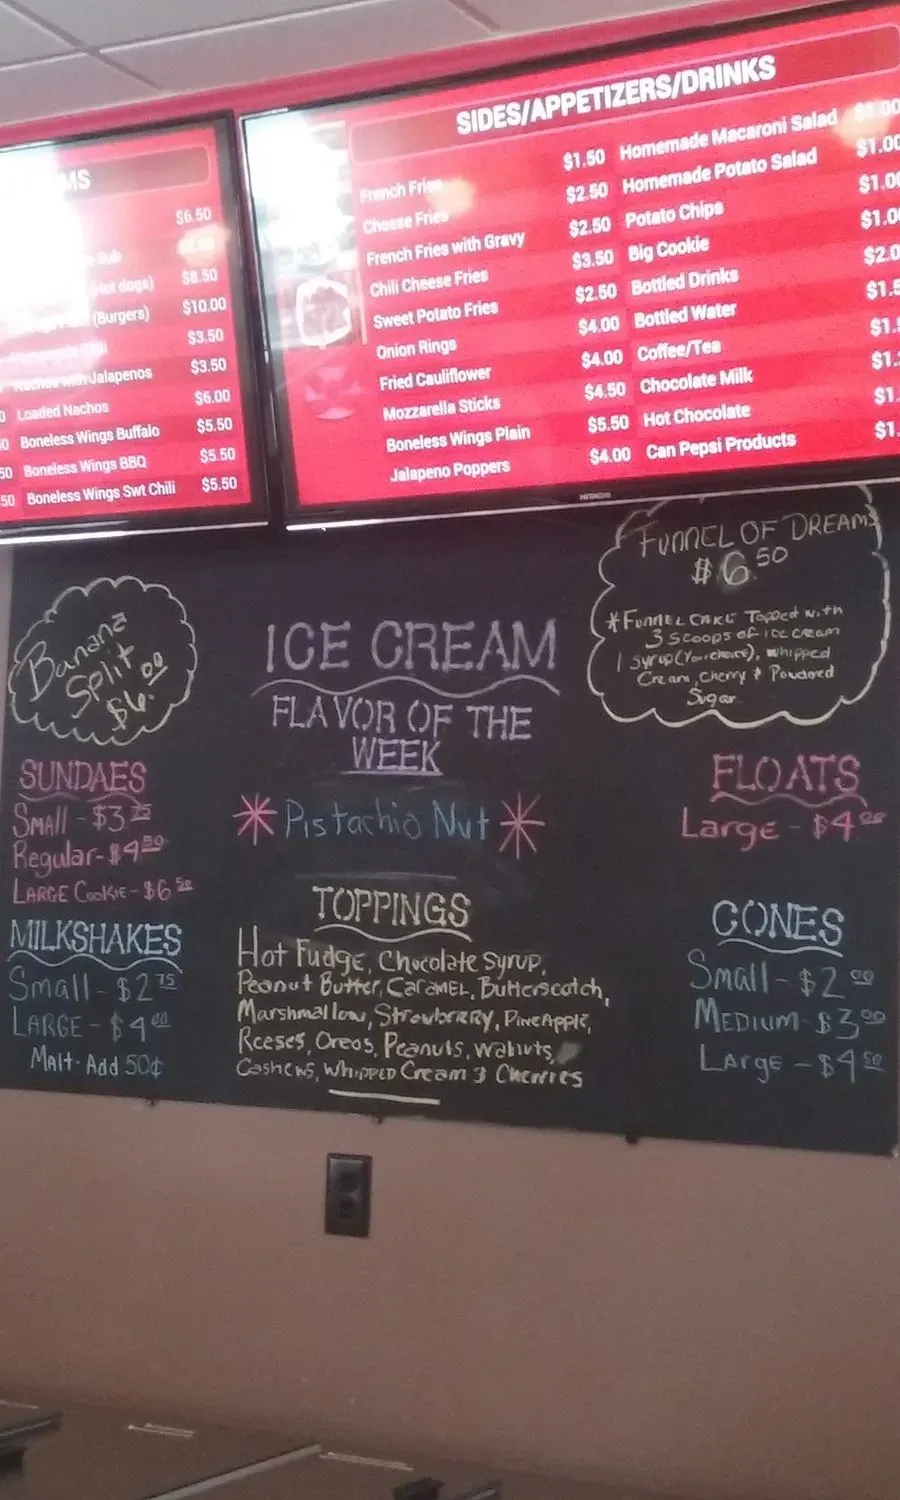 MS
$6.50
Sub
(Hot dogs) $8.50
(Burgers) $10.00
$3.50
Nachos with Jalapenos $3.50
Loaded Nachos $6.00
Boneless Wings Buffalo $5.50
50 Boneless Wings BBQ $5.50
50 Boneless Wings Swt Chili $5.50
SIDES/APPETIZERS/DRINKS
French Fries $1.50
Cheese Fries $2.50
French Fries with Gravy $2.50
Chili Cheese Fries $3.50
Sweet Potato Fries $2.50
Onion Rings $4.00
Fried Cauliflower $4.00
Mozzarella Sticks $4.50
Boneless Wings Plain $5.50
Jalapeno Poppers $4.00
Homemade Macaroni Salad
Homemade Potato Salad $1.00
Potato Chips $1.00
Big Cookie $1.0
Bottled Drinks $2.0
Bottled Water $1.5
Coffee/Tea
Chocolate Milk $1.
Hot Chocolate $1.
Can Pepsi Products $1.
HITACHI
Banana
Split
$6.00
ICE CREAM
FLAVOR OF THE
WEEK
Pistachio Nut
FUNNEL OF DREAMS
$6.50
*FUNNEL CAKE Topped with
3 Scoops of ice cream
1 Syrup (Your choice), whipped
Cream, cherry & Powdered
Sugar
SUNDAES
Small - $3.75
Regular - $4.50
LARGE COOKIE - $6.50
MILKSHAKES
Small - $2.75
LARGE - $4.00
Malt - Add 50¢
TOPPINGS
Hot Fudge, Chocolate Syrup,
Peanut Butter, CARAMEL, Butterscotch,
Marshmallow, StrawbeRRY, PINEAPPLE,
Reeses, Oreos, Peanuts, Walnuts,
Cashews, WHIPPED Cream & CHERRIES
FLOATS
Large - $4.00
CONES
Small - $2.00
MEDIUM - $3.00
Large - $4.50